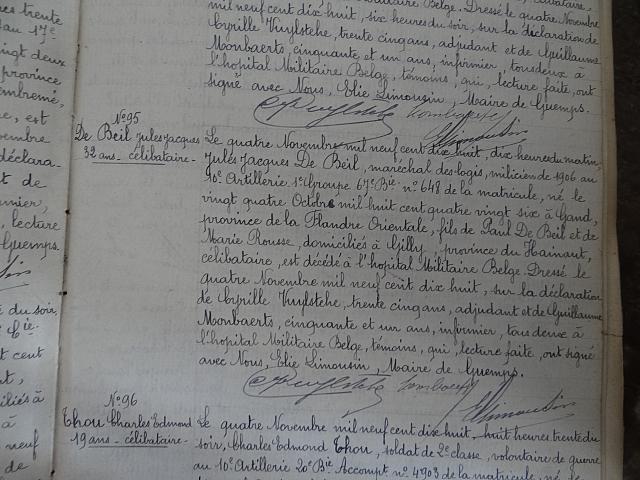 mil neuf cent dix huit, six heures du soir, sur la déclaration de
Cyrille Vuylsteke, trente cinq ans, adjudant et de Guillaume
Monbaerts, cinquante et un ans, infirmier, tous deux à
l'hopital Militaire Belge, témoins, qui, lecture faite, ont
signé avec Nous, Elie Limousin, Maire de Guemps.
N° 95
De Beil Jules Jacques
32 ans - célibataire -
Le quatre Novembre mil neuf cent dix huit, dix heures du matin,
Jules Jacques De Beil, maréchal des logis, milicien de 1906 au
10e Artillerie 1e Groupe 67e Bie n° 648 de la matricule, né le
vingt quatre Octobre mil huit cent quatre vingt six à Gand,
province de la Flandre Orientale, fils de Paul De Beil et de
Marie Rousse, domiciliés à Gilly, province du Hainaut,
célibataire, est décédé à l'hopital Militaire Belge. Dressé le
quatre Novembre mil neuf cent dix huit, sur la déclaration
de Cyrille Vuylsteke, trente cinq ans, adjudant et de Guillaume
Monbaerts, cinquante et un ans, infirmier, tous deux à
l'hopital Militaire Belge, témoins, qui, lecture faite, ont signé
avec Nous, Elie Limousin, Maire de Guemps.
N° 96
Thou Charles Edmond
19 ans - célibataire -
Le quatre Novembre mil neuf cent dix huit, huit heures trente du
soir, Charles Edmond Thou, soldat de 2e classe, volontaire de guerre
au 10e Artillerie 20e Bie Accompt n° 4903 de la matricule, né de